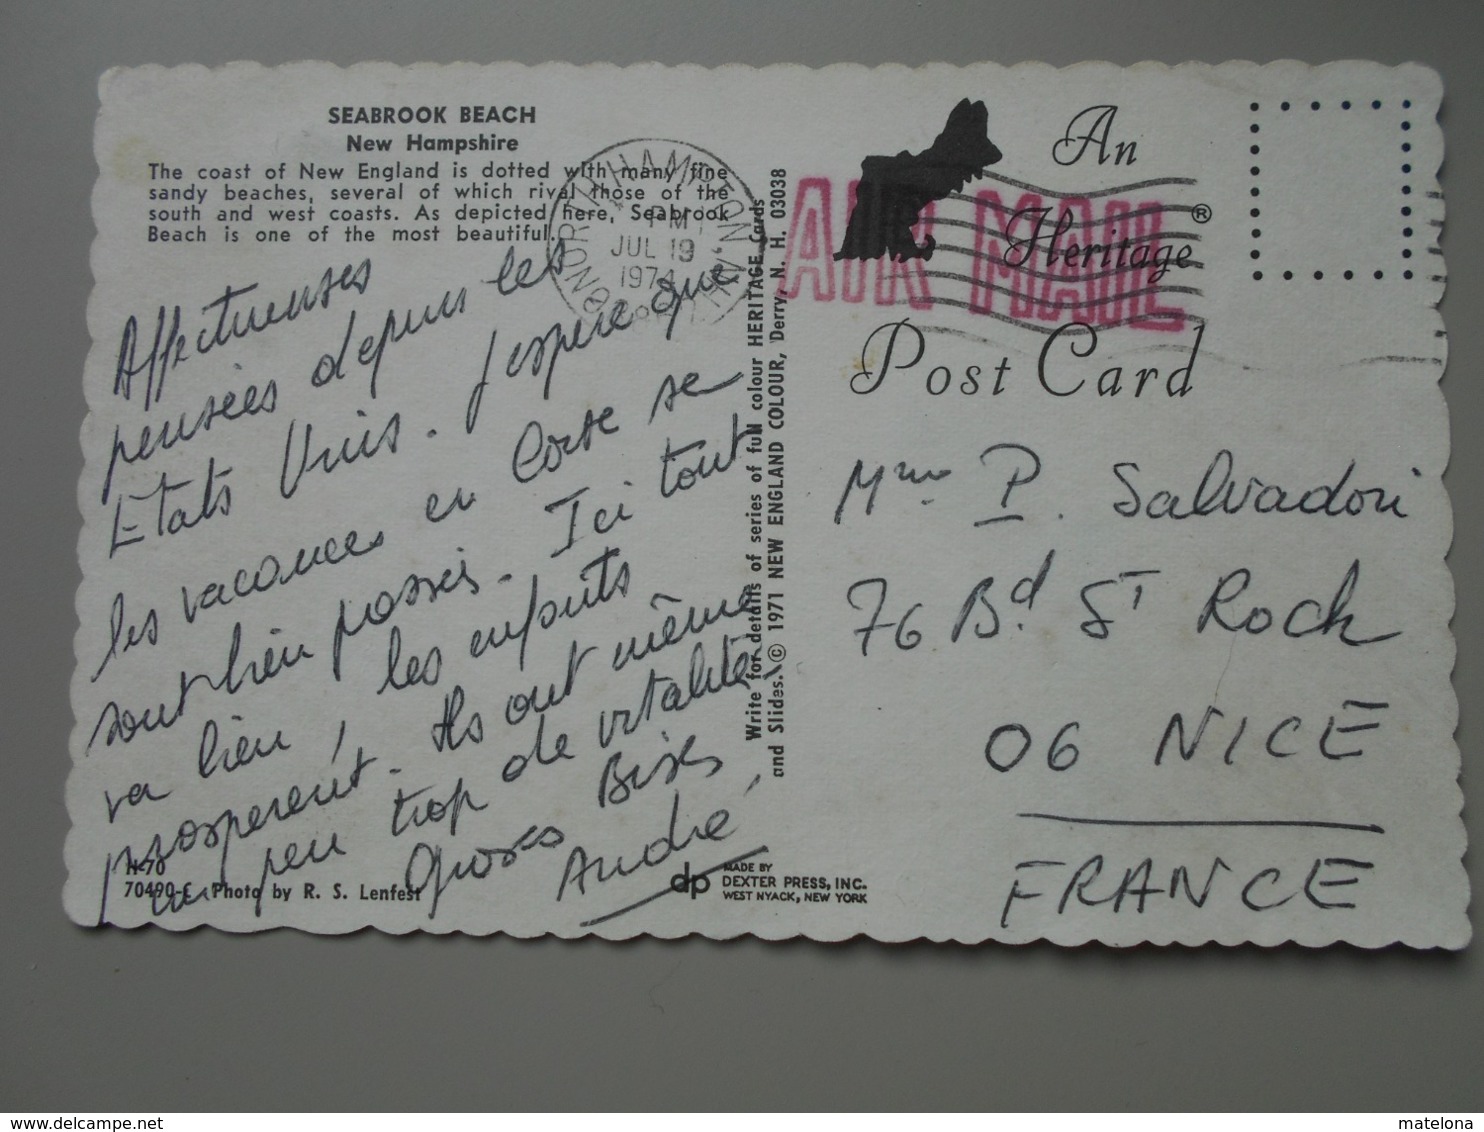 SEABROOK BEACH
New Hampshire
The coast of New England is dotted with many fine
sandy beaches, several of which rival those of the
south and west coasts. As depicted here, Seabrook
Beach is one of the most beautiful.
Affectueuses
pensées depuis les
Etats Unis. J'espère que
les vacances en Corse se
sont bien passées. Ici tout
va bien, les enfants
prospèrent. Ils ont même
un peu trop de vitalité
Grosses Bises
André
H-70
70490-C Photo by R. S. Lenfest
NORTH HAMPTON, N.H.
PM
JUL 19
1974
Write for details of series of full colour HERITAGE Cards
and Slides. © 1971 NEW ENGLAND COLOUR, Derry, N. H. 03038
dp MADE BY
DEXTER PRESS, INC.
WEST NYACK, NEW YORK
An
Heritage®
AIR MAIL
Post Card
Mme P. Salvadori
76 Bd St Roch
06 NICE
FRANCE
matelona